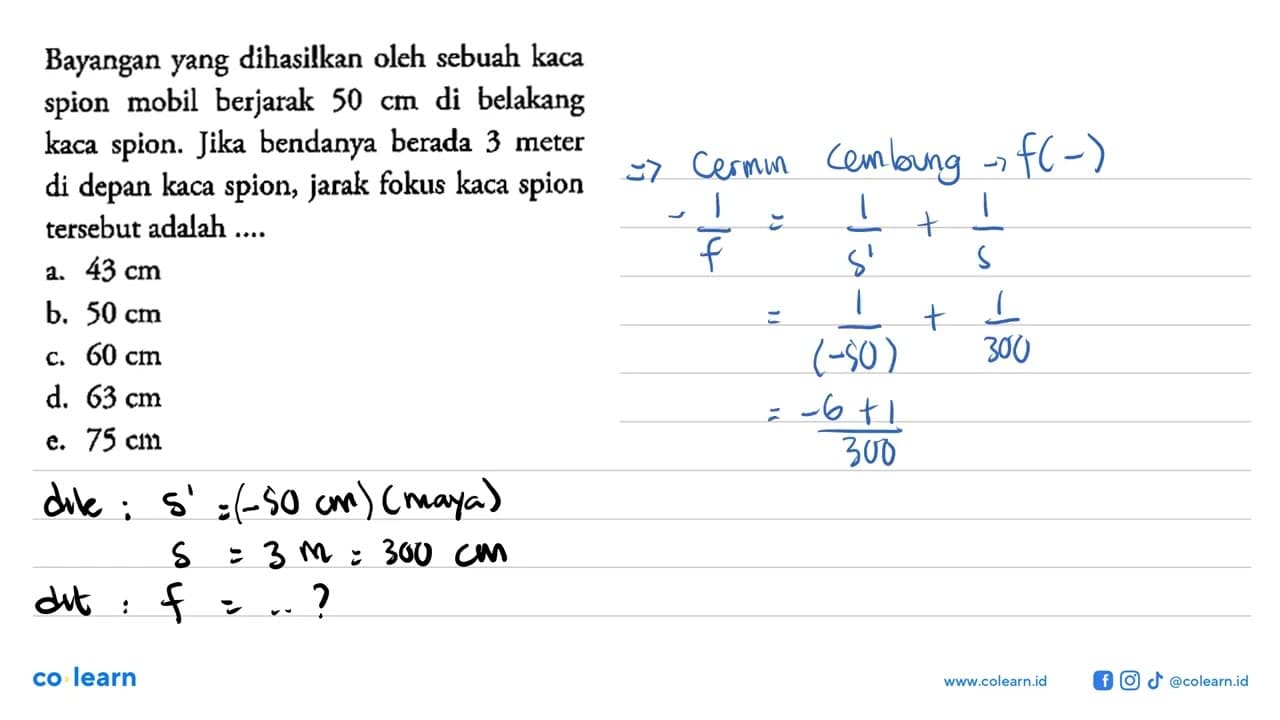 Bayangan yang dihasilkan oleh sebuah kaca
spion mobil berjarak 50 cm di belakang
kaca spion. Jika bendanya berada 3 meter
di depan kaca spion, jarak fokus kaca spion
tersebut adalah ....
a. 43 cm
b. 50 cm
c. 60 cm
d. 63 cm
e. 75 cm
dik : s' = (-50 cm) (maya)
s = 3 m = 300 cm
dit : f = .. ?
=> Cermin Cembung → f(-)
- 1/f = 1/s' + 1/s
= 1/(-50) + 1/300
= -6 + 1/300
co learn
www.colearn.id
@colearn.id